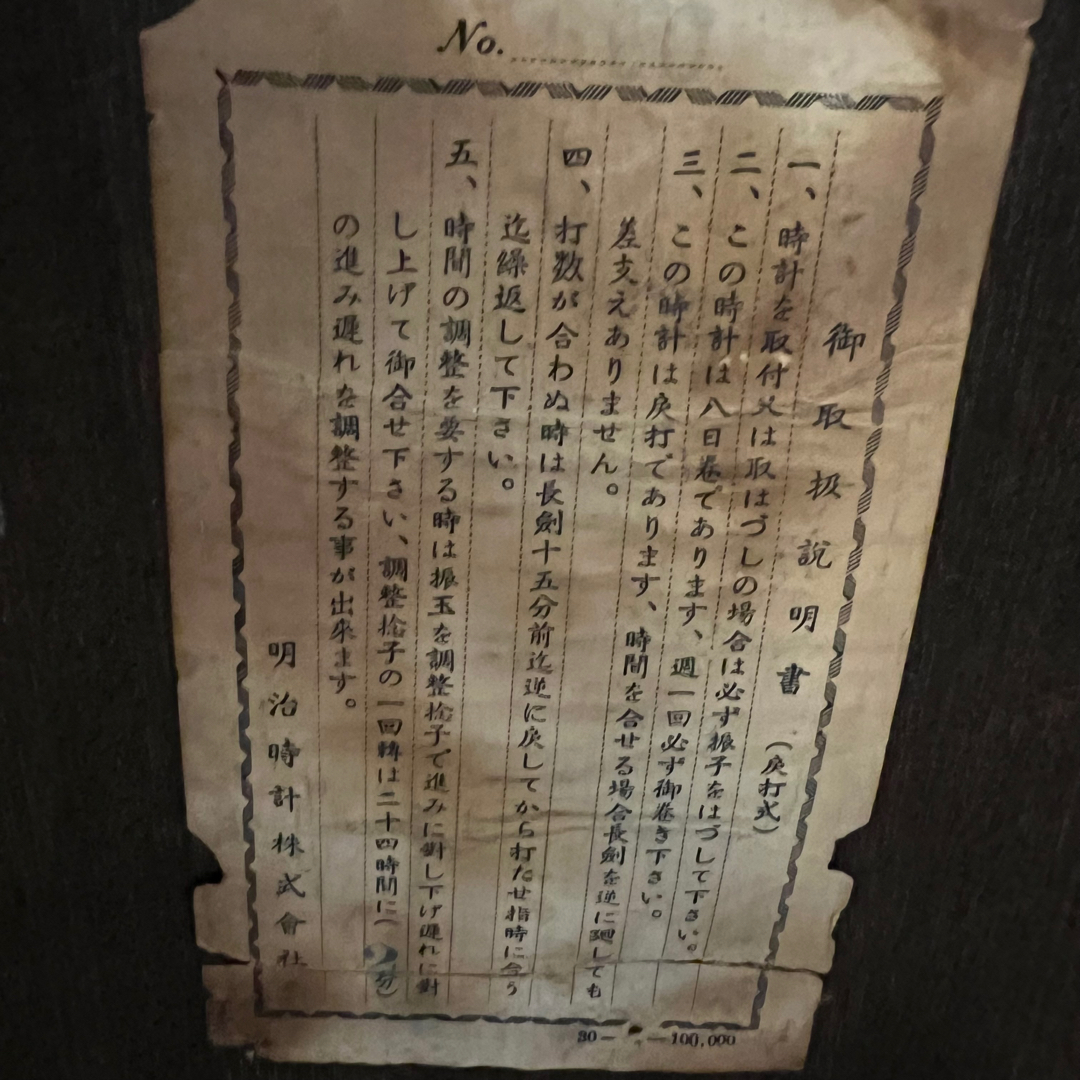 No.
御取扱説明書（戻打式）
一、時計を取付又は取はづしの場合は必ず振子をはづして下さい。
二、この時計は八日巻であります、週一回必ず御巻き下さい。
三、この時計は戻打であります、時間を合せる場合長劍を逆に廻しても
差支えありません。
四、打数が合わぬ時は長劍十五分前迄逆に戻してから打たせ指時に合う
迄繰返して下さい。
五、時間の調整を要する時は振玉を調整捻子で進みに對し下げ遅れに對
し上げて御合せ下さい、調整捻子の一回轉は二十四時間に（ 分）
の進み遅れを調整する事が出來ます。
明治時計株式會社
30— —100,000